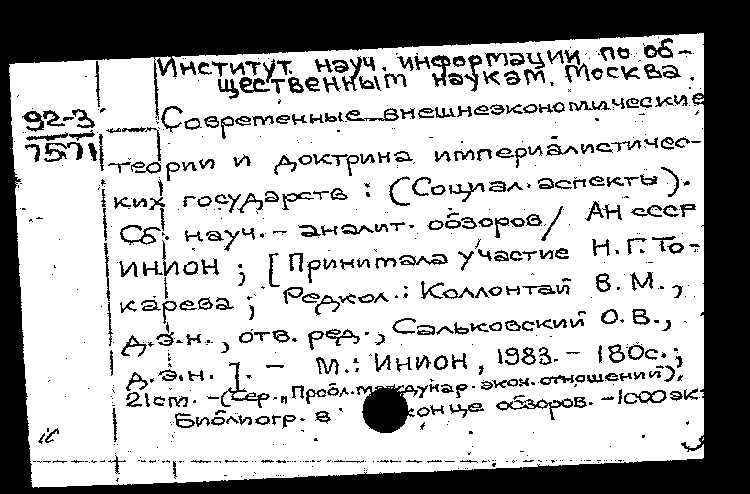 Институт науч. информации по об-
щественным наукам. Москва.
92-3
7571
Современные внешнеэкономические
теории и доктрина империалистичес-
ких государств : (Социал. аспекты).
Сб. науч.- аналит. обзоров/ АН СССР
ИНИОН ; [Принимала участие Н.Г.То-
карева ; Редкол.: Коллонтай В.М.,
д.э.н., отв. ред., Сальковский О.В.,
д.э.н. ]. - М.: ИНИОН, 1983. - 180с.;
21см. - (Сер. „Пробл.междунар. экон. отношений).
Библиогр. в конце обзоров. - 1000экз